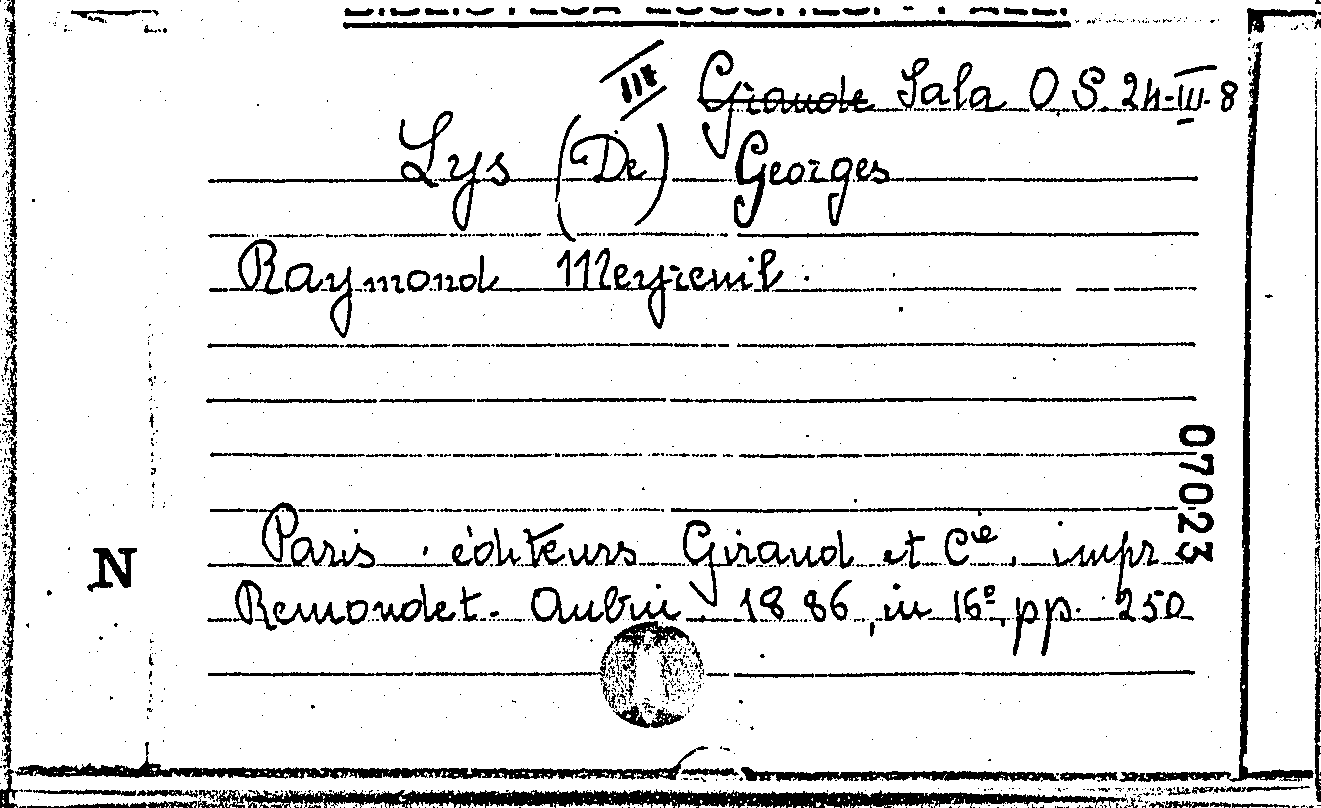 III Giraude Sala O S. 24-III-8
Lys (De) Georges
Raymond Meyreuil.
07023
N
Paris. éditeurs Giraud et Cie. impr
Remondet-Aubin. 1886, in 16º, pp. 250